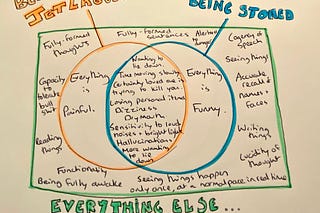 JETLAGGED
BEING STONED
Fully-formed
thoughts
Fully-formed
sentences
Cogency of
Speech
Seeing things
Wanting to
lie down
Time moving slowly
Certainty loved one is
trying to kill you
Losing personal items
Dizziness
Dry mouth
Sensitivity to loud
noises + bright lights
Hallucinations
More wanting
to lie
down
Capacity
to
tolerate
bull
shit
Everything
is
Painful.
Everything
is
Funny.
Accurate
recall of
names +
faces
Reading
things
Writing
things
Lucidity of
thought
Functionality
Being fully awake
Seeing things happen
only once, at a normal pace in real time
EVERYTHING ELSE...